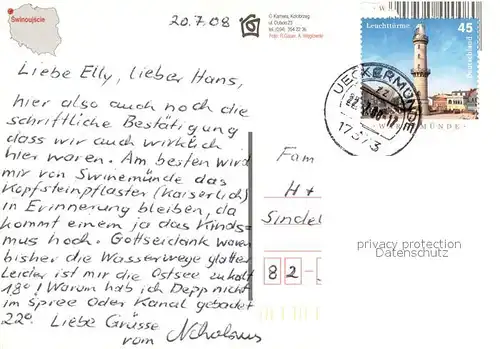 Świnoujście
20.7.08
© Kamera, Kołobrzeg
Leuchttürme 45
Deutschland
WARNEMÜNDE
UECKERMÜNDE
17373
Liebe Elly, lieber Hans,
hier also auch noch die
schriftliche Bestätigung
dass wir auch wirklich
hier waren. Am besten wird
mir von Swinemünde das
Kopfsteinpflaster (Kaiserlich)
in Erinnerung bleiben, da
kommt einem ja das Kinds-
mus hoch. Gottseidank waren
bisher die Wasserwege glatter
Leider ist mir die Ostsee zu kalt
18°! Warum hab ich Depp nicht
im Spree Oder Kanal gebadet
22°. Liebe Grüsse
vom Nikolaus
Fam
H+
Sindel
82-
privacy protection
Datenschutz